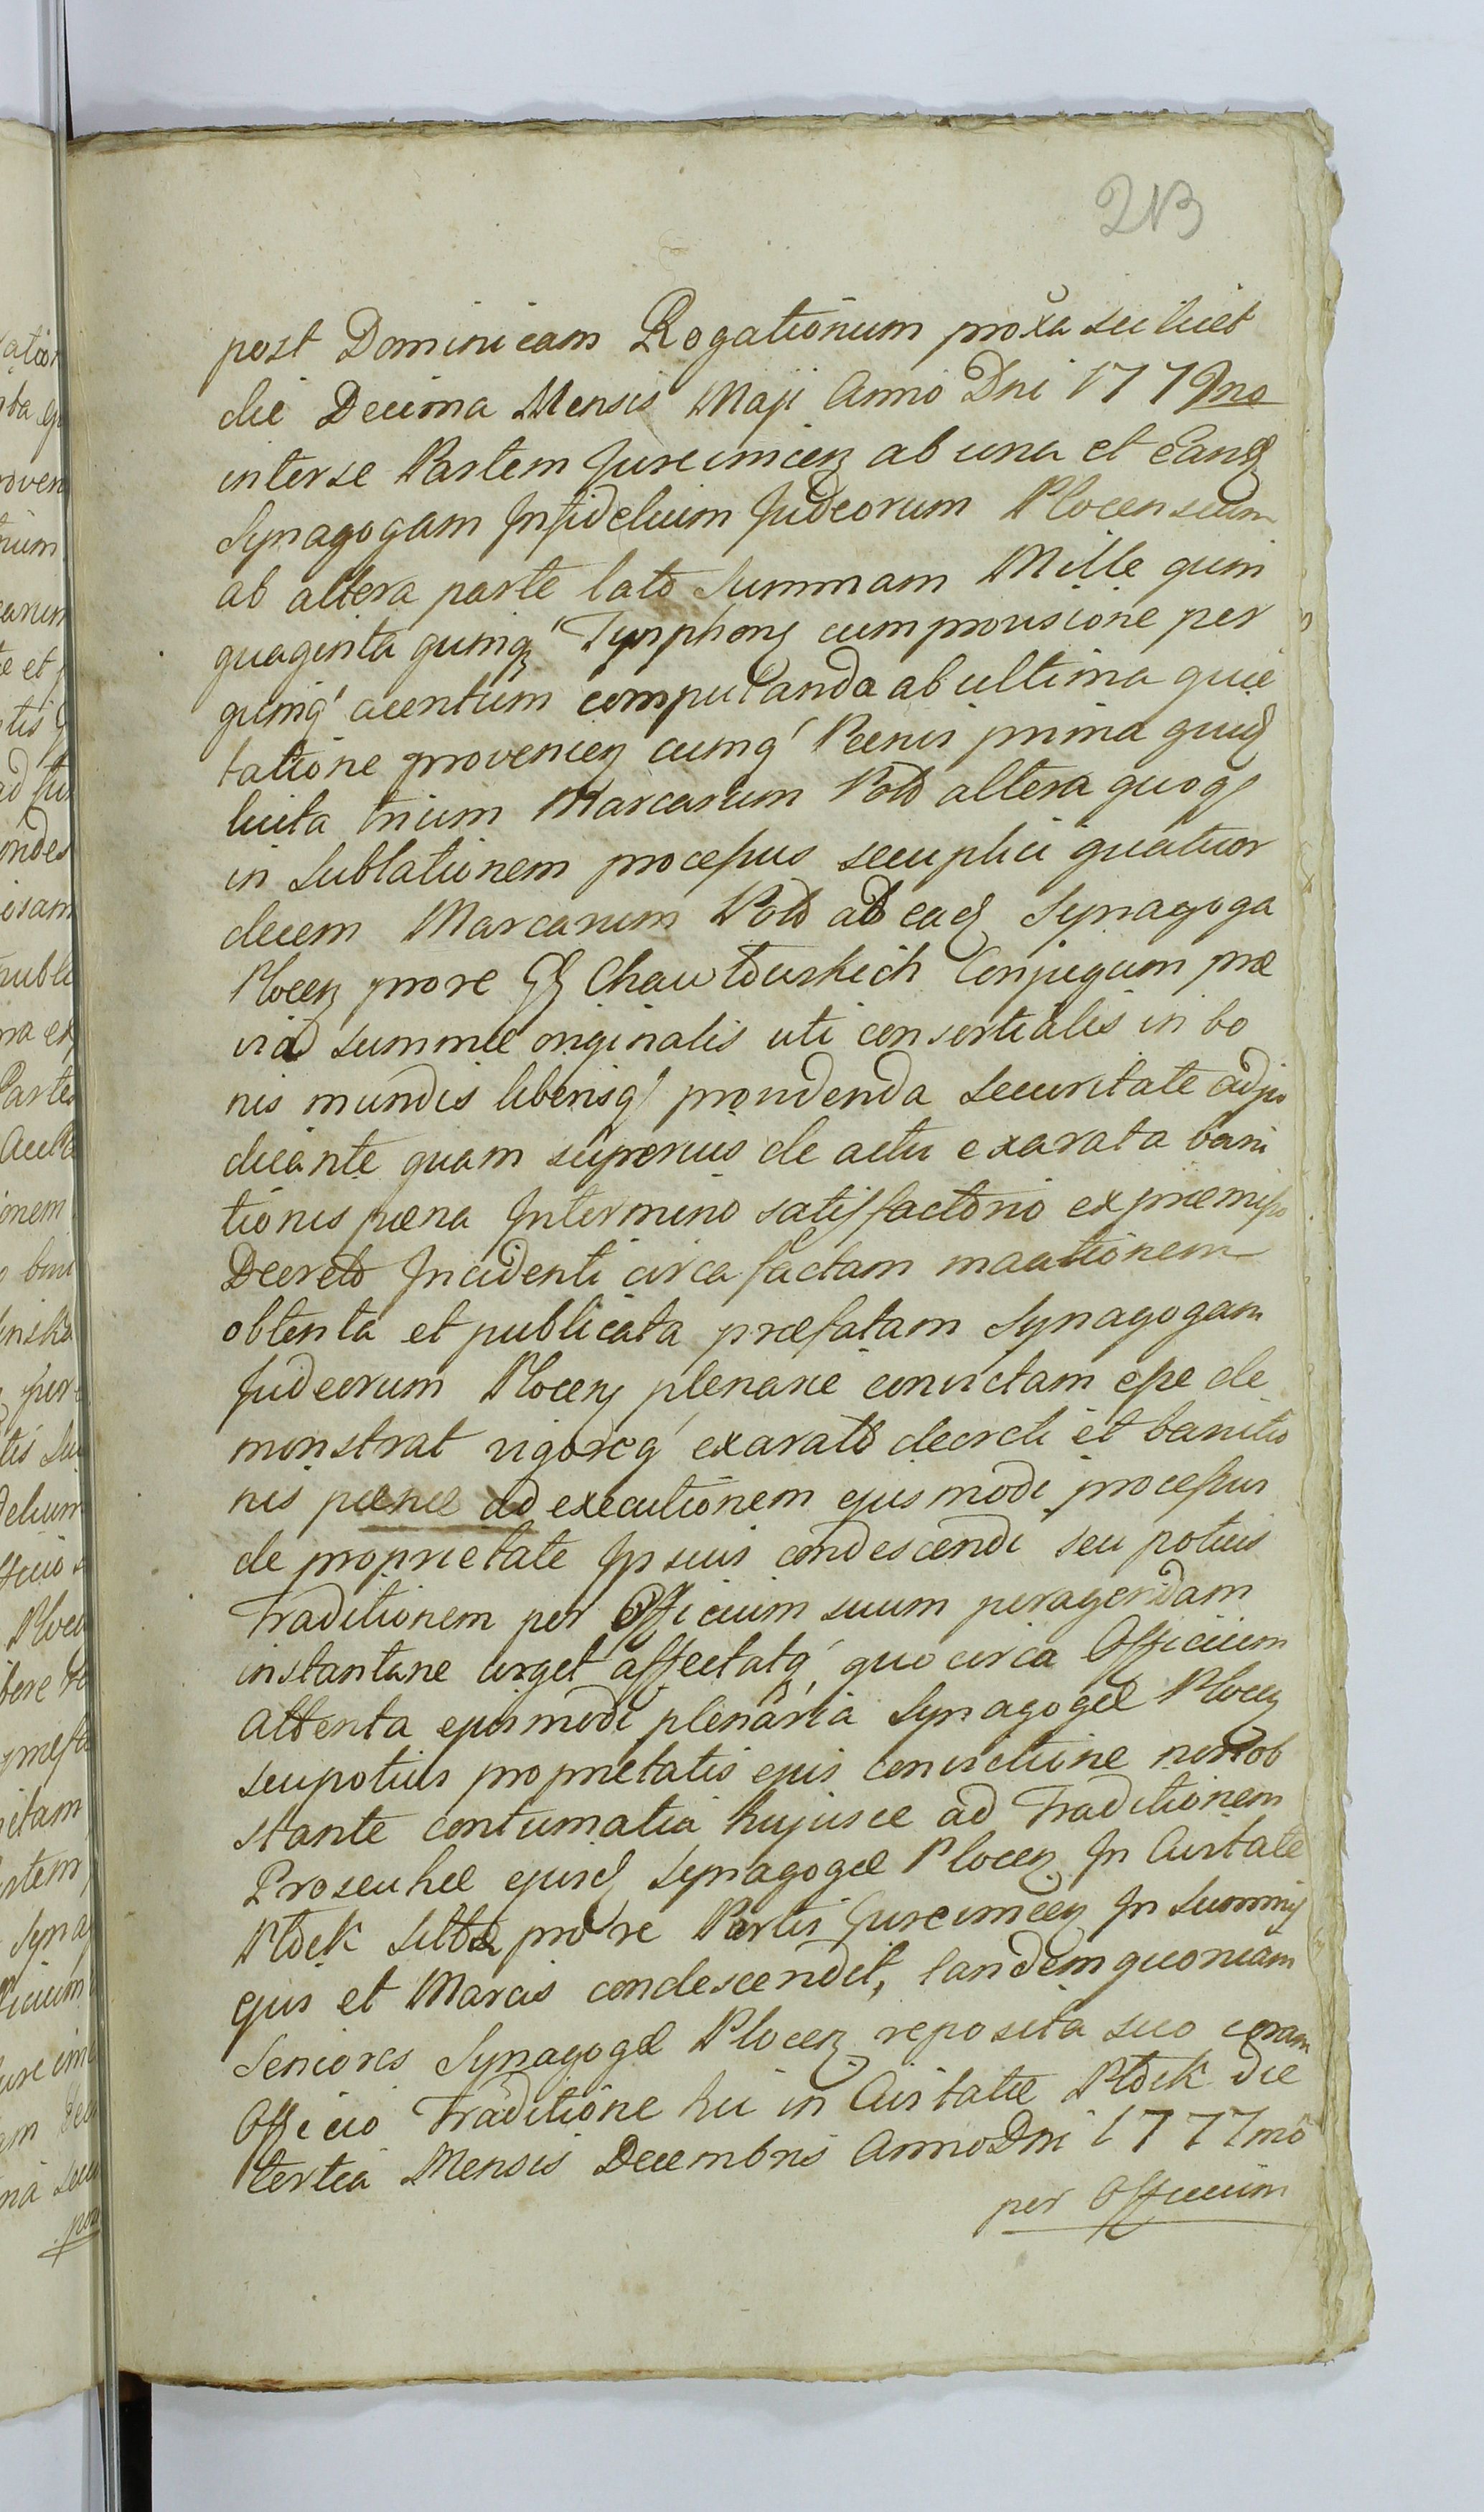 213
post Dominicam Rogationum proxa scilicet
die Decima Mensis Maji Anno Dni 1779no
inter se Partem Jurevincen ab una et Eand
Synagogam Infidelium Judeorum Plocensium
ab altera parte lato Summam Mille quin
quaginta quinq Tynphon cum provisione per
quinq a centum computanda ab ultima quie
tatione provenien cumq Penis prima quid
luita trium Marcarum Polo altera quoq
in Sublationem processus secuplici quatuor
decem Marcarum Polo ab ead Synagoga
Plocen pro re GG Chawlowskich Conjugum præ
via summæ originalis uti consortialis in bo
nis mundis liberisq providenda securitate adju
dicante quam superius de actu exarata bani
tionis pæna In termino satisfactorio ex præmisso
Decreto Incidenti circa factam maationem
obtenta et publicata præfatam Synagogam
Judeorum Plocen plenarie convictam esse de
monstrat vigoreq exarato decreti et banitio
nis pænæ ad executionem ejusmodi processus
de proprietate Ipsius condescendi seu potius
Traditionem per Officium suum peragendam
instantane urget affectatq, quo circa Officium
attenta ejusmodi plenaria Synagogæ Plocen
seu potius proprietatis ejus convictione non ob
stante contumatia hujusce ad Traditionem
Proseuhæ ejusd Synagogæ Plocen In Civitate
Płock sittæ pro re Partis Jurevincen In Summis
ejus et Marcis condescendit, tandem quoniam
Seniores Synagogæ Plocen reposita suo coram
Officio Traditione hic in Civitate Płock die
tertia Mensis Decembris Anno Dni 1777mo
per Officium